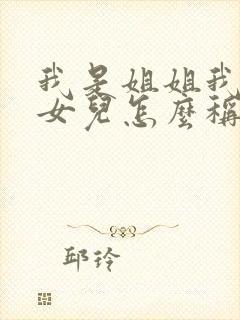 我是姐姐我
女兒怎麼稱
邱玲